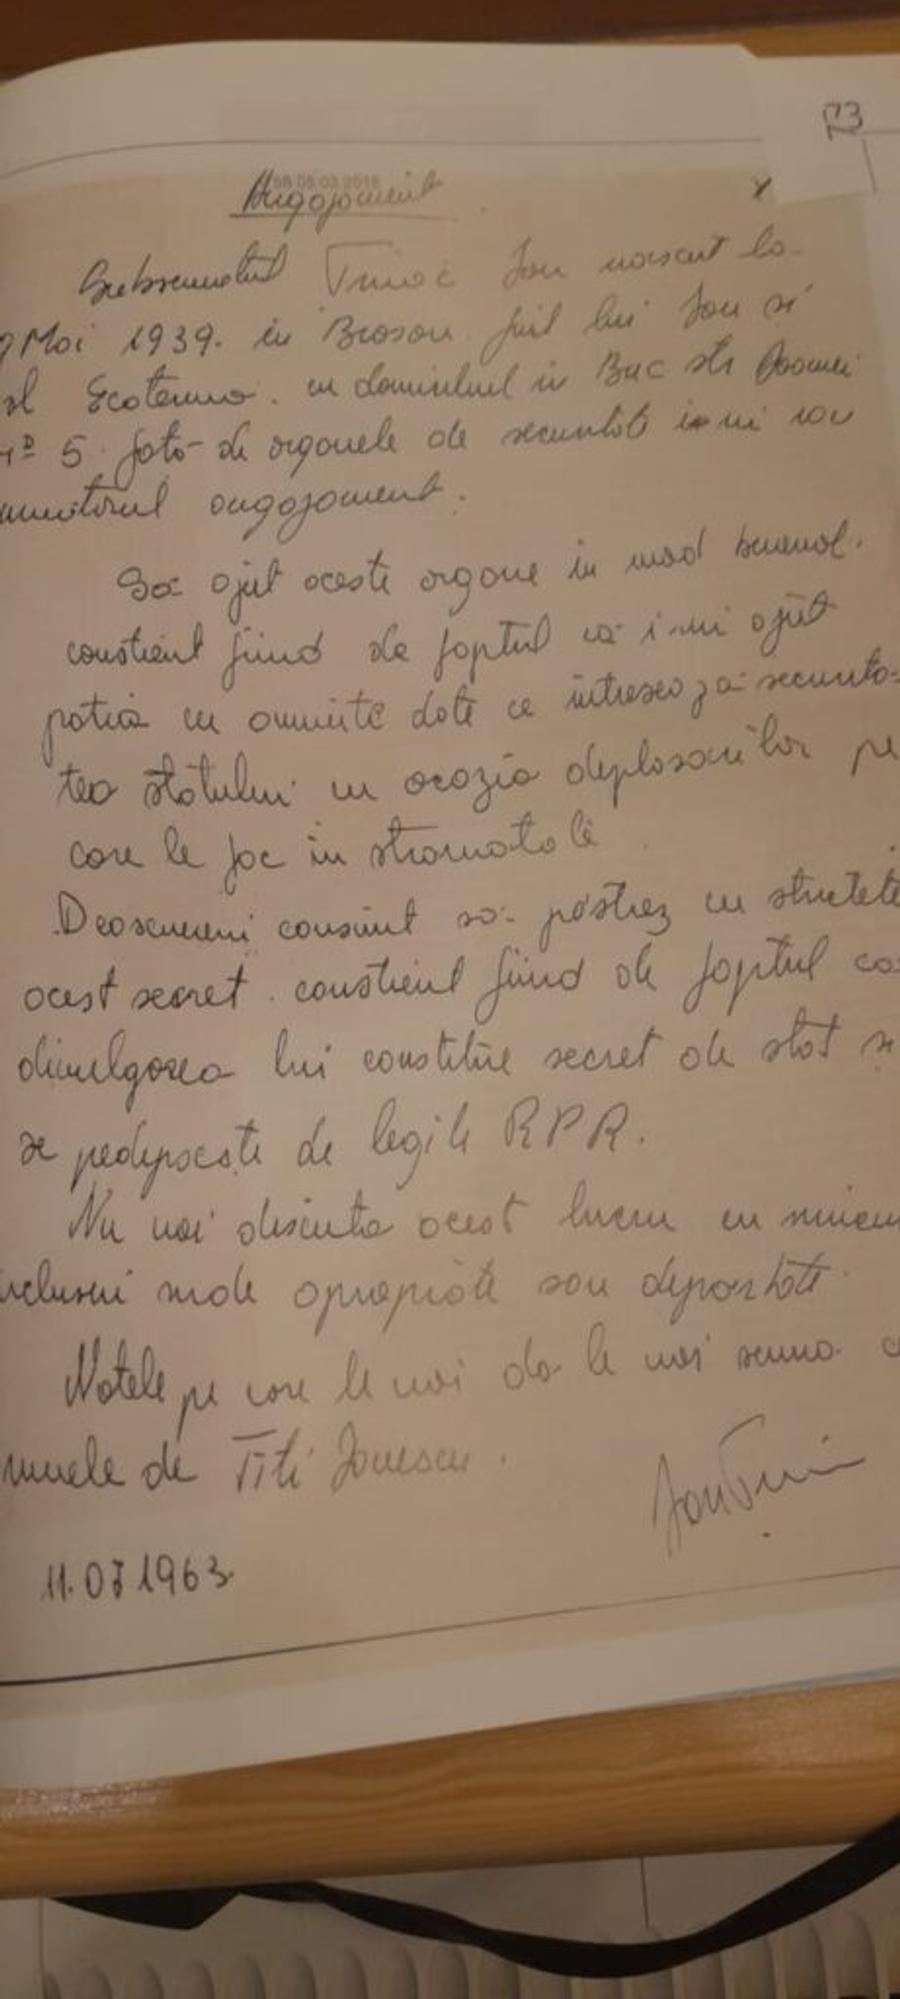 73
Angajament
Subsemnatul Țiriac Ion născut la
9 Mai 1939. în Brașov. fiul lui Ion și
al Ecaterina. cu domiciliul în Buc str
nr 5. fată de organele de securitate îmi iau
angajament.
Să ajut aceste organe în mod benevol.
conștient fiind de faptul că îmi ajut
patria cu anumite date ce intresează securita-
tea statului cu ocazia deplasărilor pe
care le fac în străinătate
Deasemeni consimt să păstrez cu strictete
acest secret. conștient fiind de faptul că
divulgarea lui constitue secret de stat și
se pedepsește de legile RPR.
Nu voi discuta acest lucru cu nimeni
inclusiv rude apropiate sau depărtate.
Notele pe care le voi da le voi semna
numele de Titi Ionescu.
11.07 1963.